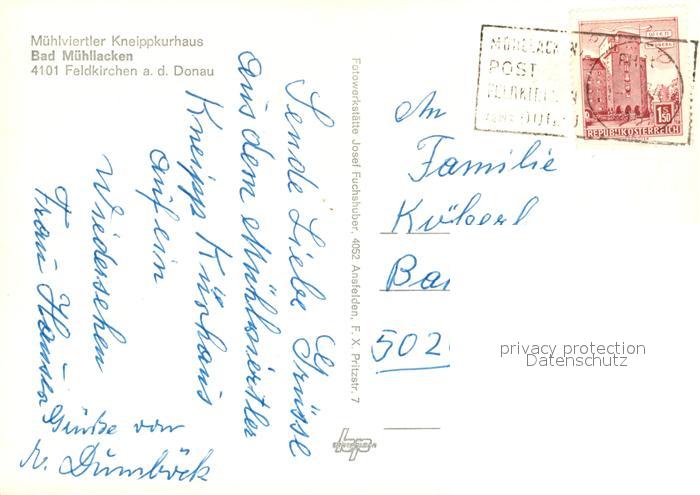 Mühlviertler Kneippkurhaus
Bad Mühllacken
4101 Feldkirchen a. d. Donau
Sende Liebe Grüsse
aus dem Mühlviertler
Kneipp Kürhaus
auf ein
Wiedersehen
Frau
Grüße von
Dumböck
Fotowerkstätte Josef Fuchshuber, 4052 Ansfelden, F. X. Pritzstr. 7
POST
WIEN
1.50
REPUBLIK ÖSTERREICH
An
Familie
Ba
502
privacy protection
Datenschutz